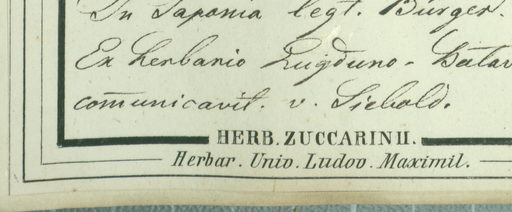 In Japonia legt. Bürger.
Ex herbario Lugduno-Batav
comunicavit. v. Siebold.
HERB. ZUCCARINII.
Herbar. Univ. Ludov. Maximil.